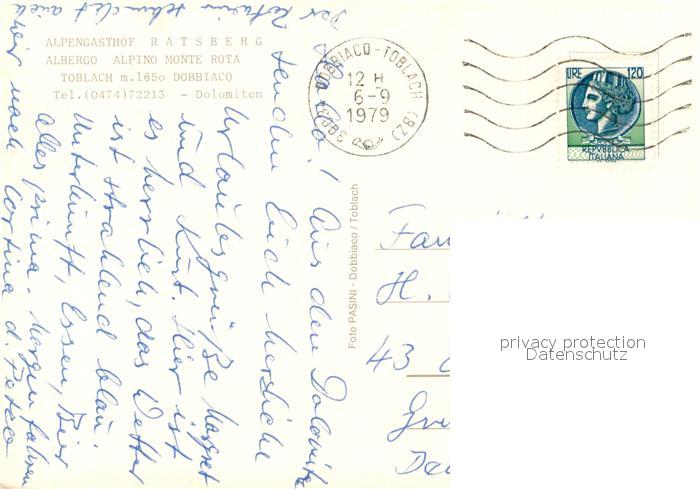 ALPENGASTHOF RATSBERG
ALBERGO ALPINO MONTE ROTA
TOBLACH m.1650 DOBBIACO
Tel.(0474)72213 - Dolomiten
39034 DOBBIACO-TOBLACH (BZ)
12 H
6-9
1979
LIRE 120
REPVBBLICA
ITALIANA
Aus den Dolomiten
senden Euch herzliche
Urlaubsgrüße Margret
und Kurt. Hier ist
es herrlich, das Wetter
ist strahlend blau.
Unterkunft, Essen, Bier
alles prima. Morgen fahren
wir nach Cortina d.
Der
Foto PASINI - Dobbiaco / Toblach
Fam
H.
43
privacy protection
Datenschutz